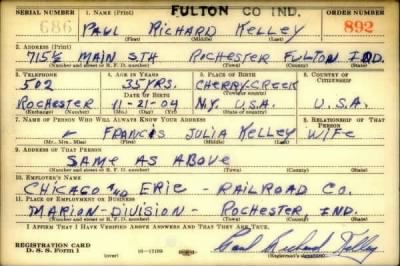 FULTON CO IND.
SERIAL NUMBER 1. NAME (Print) ORDER NUMBER
686 PAUL RICHARD KELLEY 892
(First) (Middle) (Last)
2. ADDRESS (Print)
715½ MAIN STH ROCHESTER FULTON IND.
(Number and street or R. F. D. number) (Town) (County) (State)
3. TELEPHONE 4. AGE IN YEARS 5. PLACE OF BIRTH 6. COUNTRY OF CITIZENSHIP
502 35 YRS. CHERRY CREEK
DATE OF BIRTH
ROCHESTER 11-21-04 N.Y. U.S.A. U.S.A.
(Exchange) (Mo.) (Day) (Yr.) (State or country)
7. NAME OF PERSON WHO WILL ALWAYS KNOW YOUR ADDRESS 8. RELATIONSHIP OF THAT PERSON
FRANCIS JULIA KELLEY WIFE
(Mr., Mrs., Miss) (First) (Middle) (Last)
9. ADDRESS OF THAT PERSON
SAME AS ABOVE
(Number and street or R. F. D. number) (Town) (County) (State)
10. EMPLOYER'S NAME
CHICAGO AND ERIE - RAILROAD CO.
11. PLACE OF EMPLOYMENT OR BUSINESS
MARION-DIVISION - ROCHESTER IND.
(Number and street or R. F. D. number) (Town) (County) (State)
I AFFIRM THAT I HAVE VERIFIED ABOVE ANSWERS AND THAT THEY ARE TRUE.
REGISTRATION CARD
D. S. S. Form 1 (over) 16—17105 Paul Richard Kelley
(Registrant's signature)